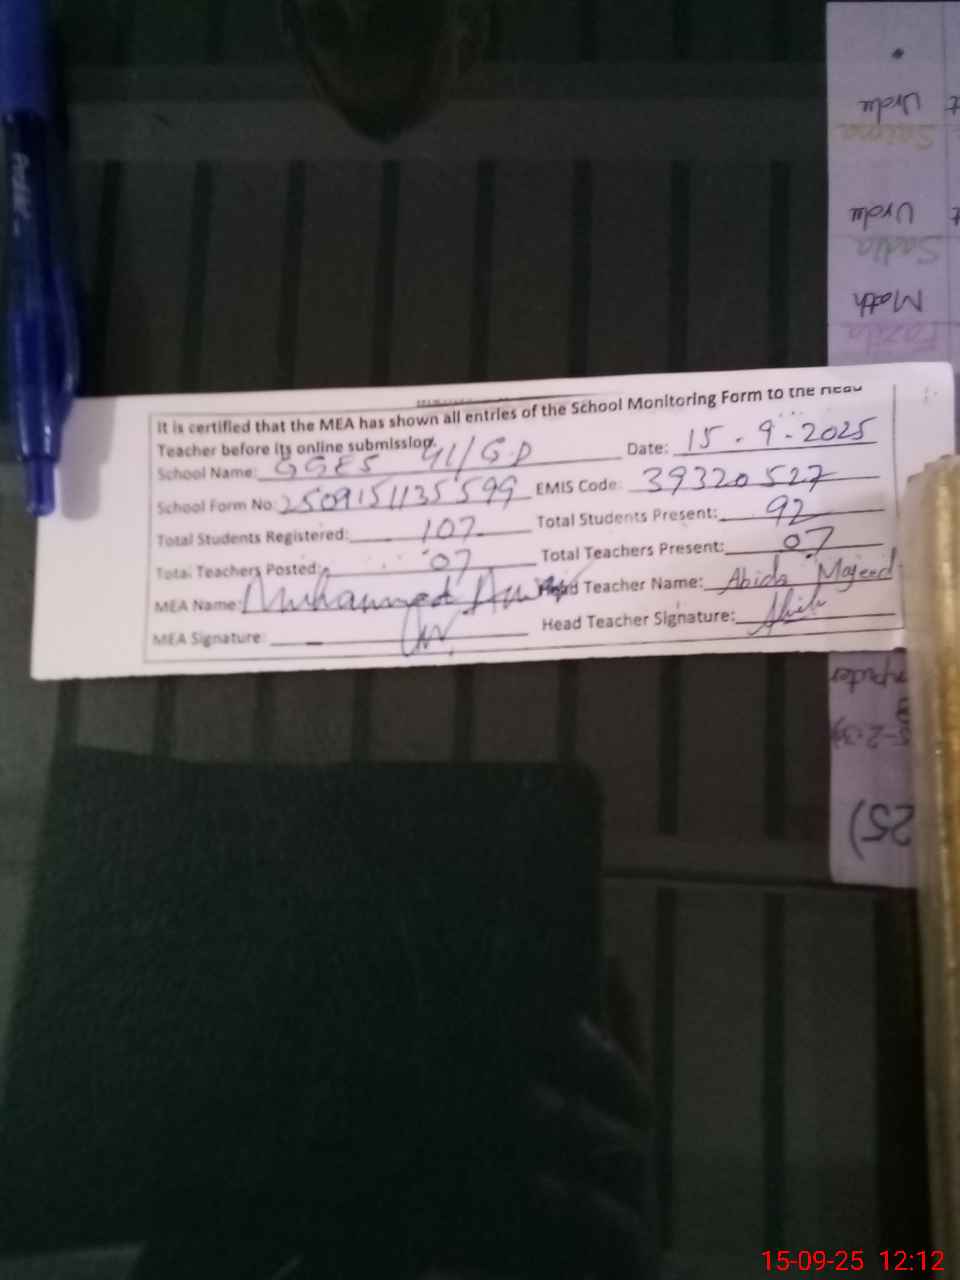 It is certified that the MEA has shown all entries of the School Monitoring Form to the Head
Teacher before its online submission.
Date: 15-9-2025
School Name: GGES 41/G.D
School Form No: 2509151135599
EMIS Code: 39320527
Total Students Registered: 107
Total Students Present: 92
Total Teachers Posted: 07
Total Teachers Present: 07
MEA Name: Muhammad
Head Teacher Name: Abida Majeed
MEA Signature:
Head Teacher Signature: Abida
Urdu
Saima
Urdu
Sadia
Math
Fazila
25)
15-09-25 12:12